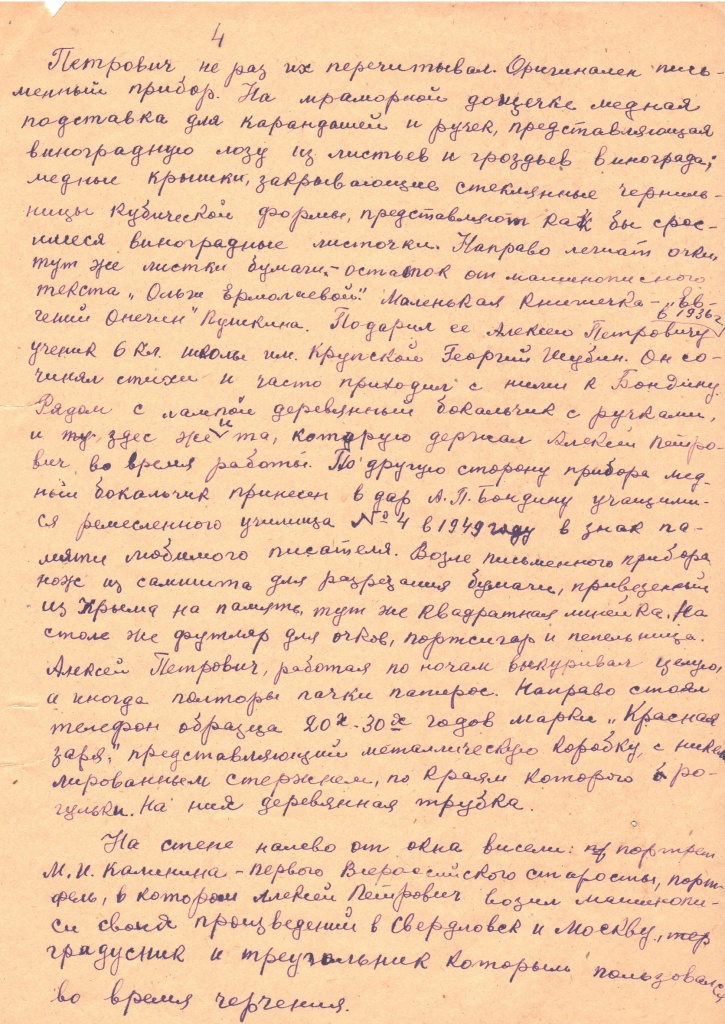 4
Петрович не раз их перечитывал. Оригинален пись-
менный прибор. На мраморной дощечке медная
подставка для карандашей и ручек, представляющая
виноградную лозу из листьев и гроздьев винограда;
медные крышки, закрывающие стеклянные черниль-
ницы кубической формы, представляют как бы срос-
шиеся виноградные листочки. Направо лежат очки,
тут же листки бумаги - остаток от машинописного
текста „Ольги Ермолаевой". Маленькая книжечка - „Ев-
в 1936г
гений Онегин" Пушкина. Подарил ее Алексею Петровичу
ученик 6 кл. школы им. Крупской Георгий Шубин. Он со-
чинял стихи и часто приходил с ними к Бондину.
Рядом с лампой деревянный бокальчик с ручками,
и ту. здес же и та, которую держал Алексей Петро-
вич во время работы. По другую сторону прибора мед-
ный бокальчик принесен в дар А.П. Бондину учащими-
ся ремесленного училища №4 в 1949 году в знак па-
мяти любимого писателя. Возле письменного прибора
нож из самшита для разрезания бумаги, привезенный
из Крыма на память, тут же квадратная линейка. На
столе же футляр для очков, портсигар и пепельница.
Алексей Петрович, работая по ночам выкуривал целую,
а иногда полторы пачки папирос. Направо стоял
телефон образца 20х-30х годов марки „Красная
заря," представляющий металлическую коробку, с никел
лированным стержнем, по краям которого ро-
гульки. На них деревянная трубка.
На стене налево от окна висели: портрет
М.И. Калинина - первого Всероссийского старосты, порт-
фель, в котором Алексей Петрович возил машинопи-
си своих произведений в Свердловск и Москву, тер
градусник и треугольник которым пользовался
во время черчения.